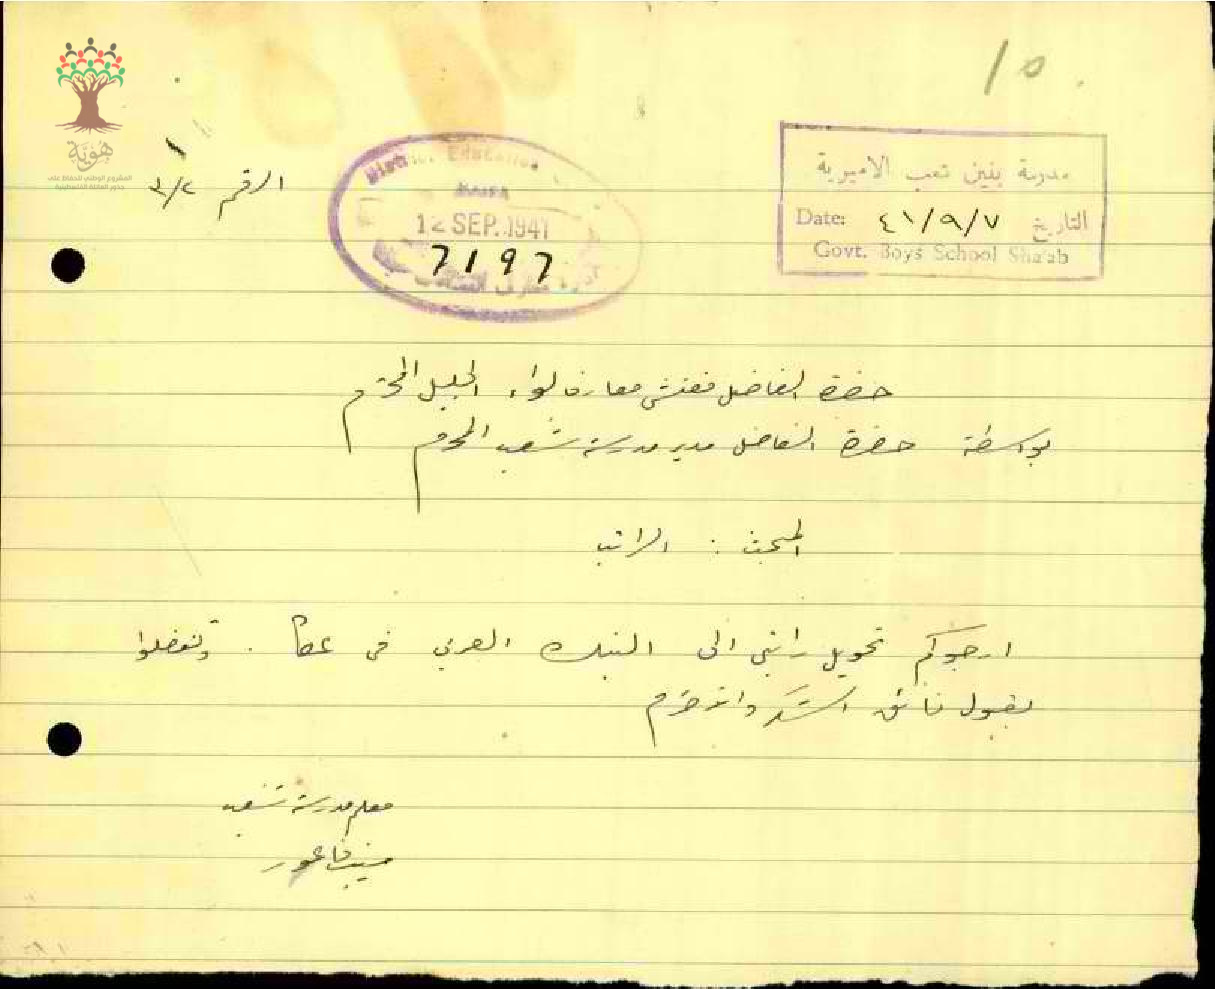 ١٥
هَوِيَّة
المشروع الوطني للحفاظ على
جذور العائلة الفلسطينية
مدرسة بنين شعب الاميرية
Date: ٤١/٩/٧ التاريخ
Govt. Boys School Sha'ab
District Education
HAIFA
12 SEP. 1941
7197
الرقم ٣/٢
حضرة الفاضل مفتش معارف لواء الجليل المحترم
بواسطة حضرة الفاضل مدير مدرسة شعب المحترم
المبحث : الراتب
ارجوكم تحويل راتبي الى البنك العربي في عكا . وتفضلوا
بقبول فائق الشكر والاحترام
معلم مدرسة شعب
منيب فاعور